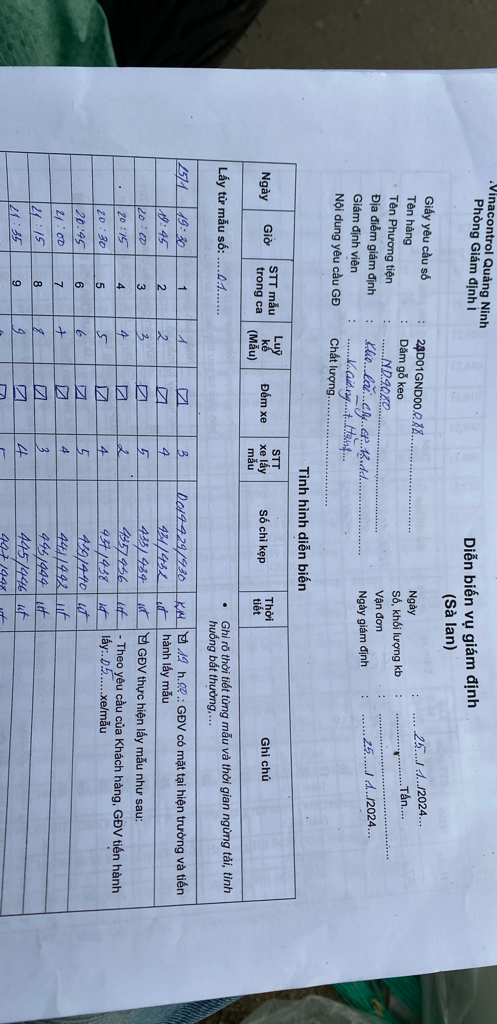 .Vinacontrol Quảng Ninh
Phòng Giám định I
Diễn biến vụ giám định
(Sà lan)
Giấy yêu cầu số : 24D01GND00.088
Ngày : 25 / 1 /2024
Tên hàng : Dăm gỗ keo
Số, khối lượng kb : Tấn
Tên Phương tiện : ND4080
Vận đơn :
Địa điểm giám định :
Ngày giám định : 25 / 1 /2024
Giám định viên : Hùng
Nội dung yêu cầu GĐ : Chất lượng
Tình hình diễn biến
Ngày Giờ STT mẫu trong ca Luỹ kế (Mẫu) Đếm xe STT xe lấy mẫu Số chì kẹp Thời tiết Ghi chú
Lấy từ mẫu số: 01
• Ghi rõ thời tiết từng mẫu và thời gian ngừng tải, tình huống bất thường,...
25/1 19:30 1 1 ☑ 3 D019429/430
☑ 19 h.00: GĐV có mặt tại hiện trường và tiến hành lấy mẫu
19:45 2 2 ☑ 4 431/432 ut
20:00 3 3 ☑ 5 433/434 ut
☑ GĐV thực hiện lấy mẫu như sau:
20:15 4 4 ☑ 2 435/436 ut
- Theo yêu cầu của Khách hàng, GĐV tiến hành lấy 05 xe/mẫu
20:30 5 5 ☑ 4 437/438 ut
20:45 6 6 ☑ 5 439/440 ut
21:00 7 7 ☑ 4 441/442 ut
21:15 8 8 ☑ 3 443/444 ut
21:35 9 9 ☑ 4 445/446 ut
☑ 5 447/448 ut